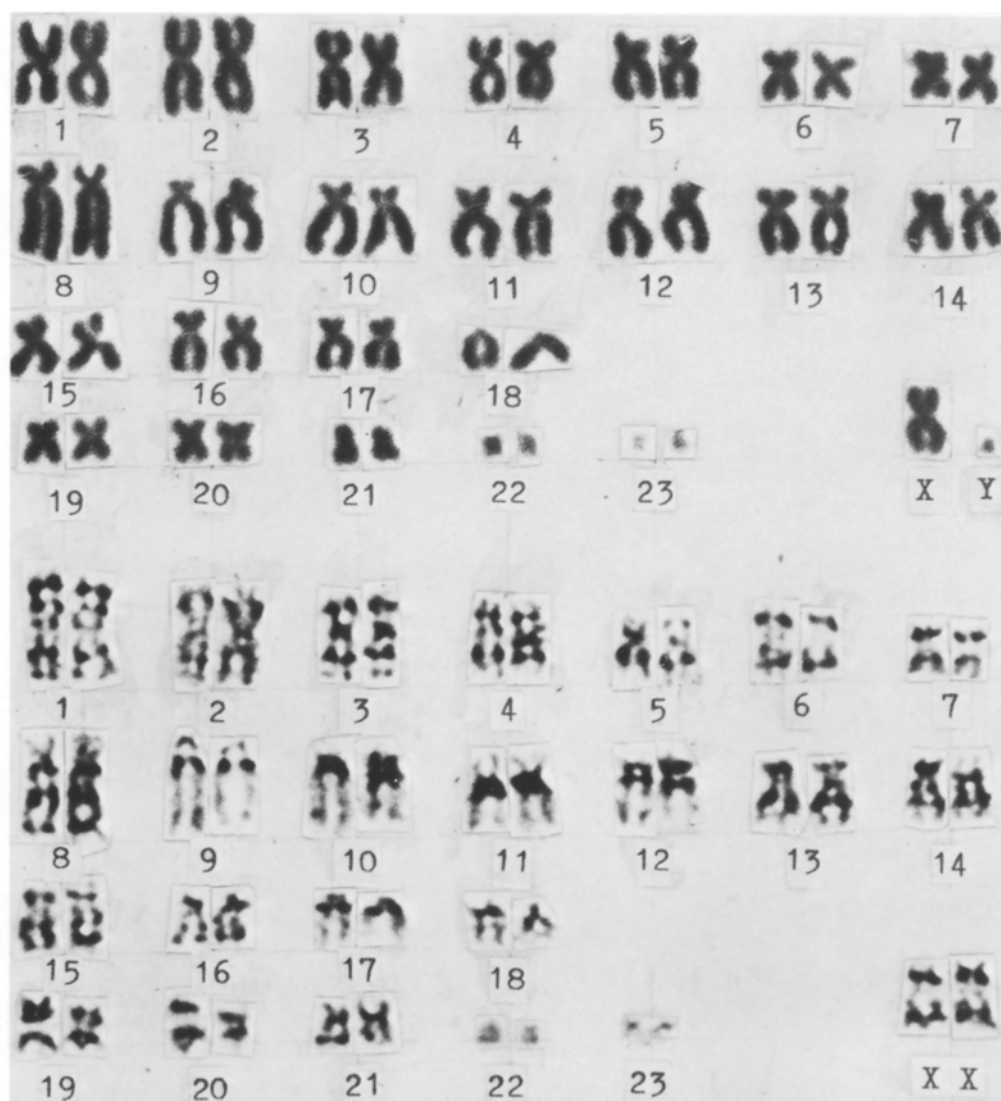 1 2 3 4 5 6 7
8 9 10 11 12 13 14
15 16 17 18
19 20 21 22 23 X Y
1 2 3 4 5 6 7
8 9 10 11 12 13 14
15 16 17 18
19 20 21 22 23 X X